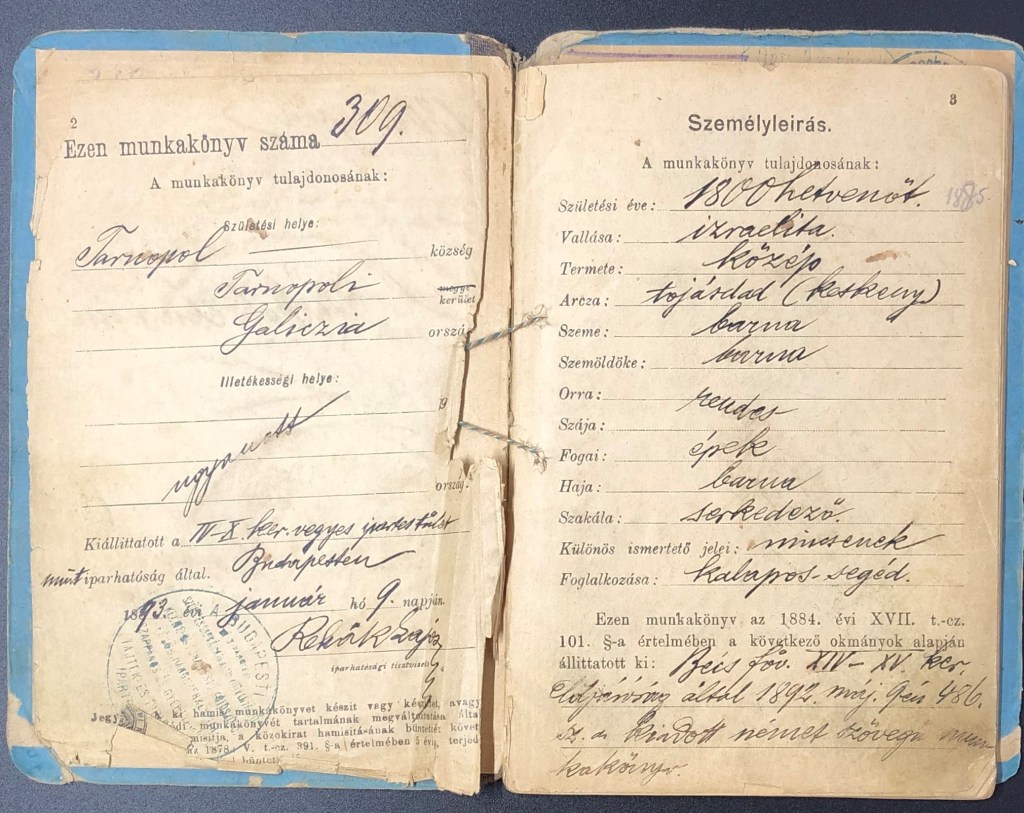 2
Ezen munkakönyv száma 309.
A munkakönyv tulajdonosának:
Születési helye:
Tarnopol község
Tarnopoli megye kerület
Galiczia orszá
Illetékességi helye:
ugyanott
ország.
Kiállittatott a IV-X ker. vegyes
mint iparhatóság által. Budapesten
1893. évi január hó 9. napján.
iparhatósági tisztviselő
Jegy ki hamis munkakönyvet készit vagy készitet, avagy
munkakönyvét tartalmának megváltoztatása álta
misitja, a közokirat hamisitásának büntetté követ
az 1878. V. t.-cz. 391. §-a értelmében 5 évig terjed
büntet
3
Személyleírás.
A munkakönyv tulajdonosának:
Születési éve: 1800hetvenöt. 1885.
Vallása: izraelita.
Termete: közép
Arcza: tojásdad (keskeny)
Szeme: barna
Szemöldöke: barna
Orra:
rendes
Szája:
Fogai: épek
Haja: barna
Szakála: serkedező.
Különös ismertető jelei: nincsenek
Foglalkozása: kalapos-segéd.
Ezen munkakönyv az 1884. évi XVII. t.-cz.
101. §-a értelmében a következő okmányok alapján
állittatott ki: Bécs főv. XIV-XV ker.
Elöljáróság által 1892. máj. 9én 486.
sz. a. kiadott német szövegü mun-
kakönyv.